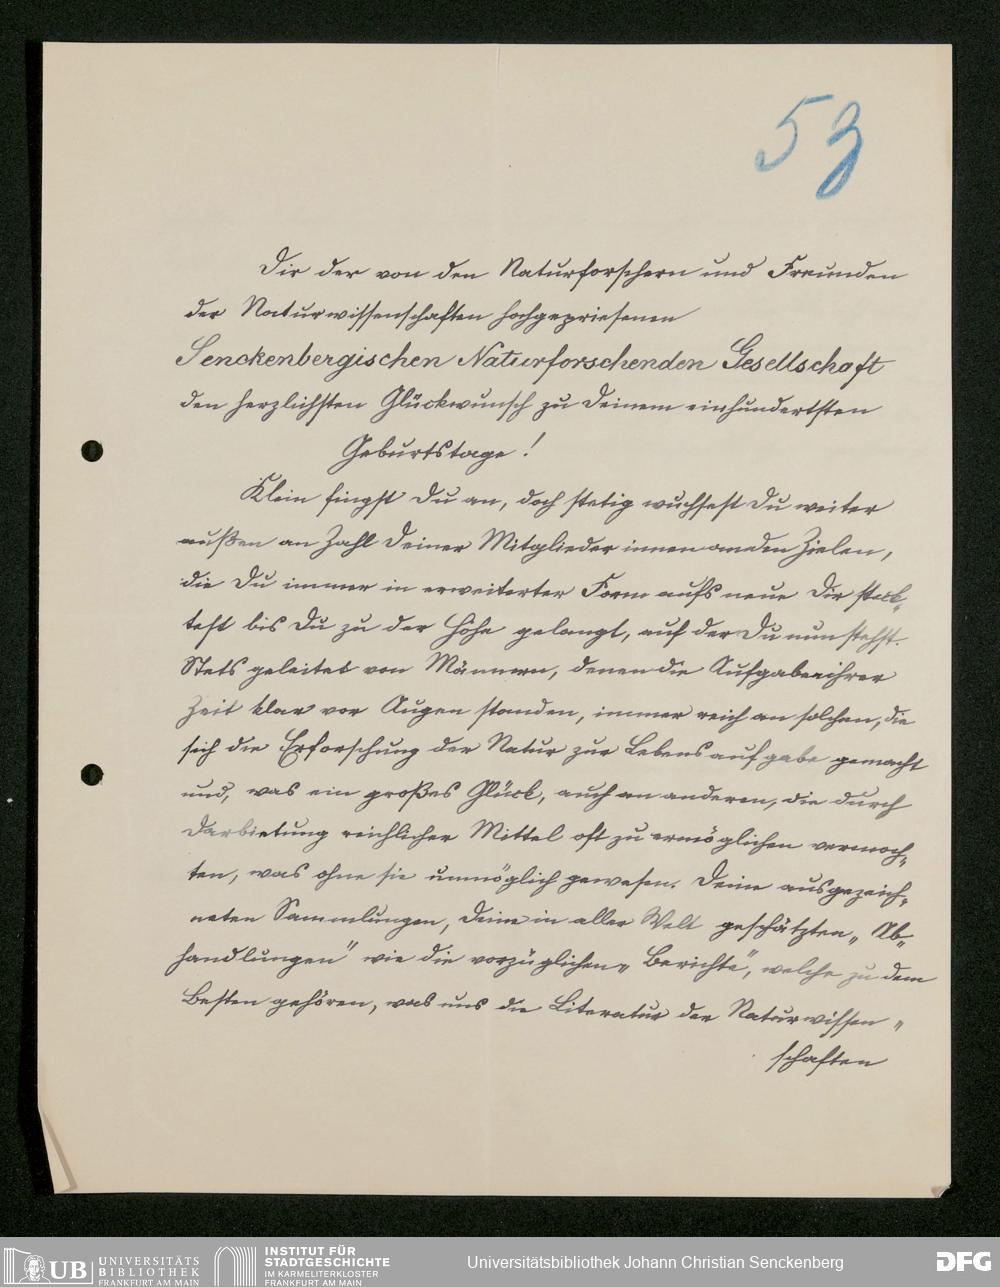 53
Dir der von den Naturforschern und Freunden
der Naturwissenschaften hochgepriesenen
Senckenbergischen Naturforschenden Gesellschaft
den herzlichsten Glückwunsch zu Deinem einhundertsten
Geburtstage!
Klein fingst Du an, doch stetig wuchsest Du weiter
außen an Zahl Deiner Mitglieder innen an den Zielen,
die Du immer in erweiterter Form aufs neue Dir steck-
test bis Du zu der Höhe gelangt, auf der Du nun stehst.
Stets geleitet von Männern, denen die Aufgaben ihrer
Zeit klar vor Augen standen, immer reich an solchen, die
sich die Erforschung der Natur zur Lebensaufgabe gemacht
und, was ein großes Glück, auch an anderen, die durch
Darbietung reichlicher Mittel oft zu ermöglichen vermoch-
ten, was ohne sie unmöglich gewesen. Deine ausgezeich-
neten Sammlungen, Deine in aller Welt geschätzten „Ab-
handlungen" wie die vorzüglichen „Berichte", welche zu dem
Besten gehören, was uns die Literatur der Naturwissen-
schaften
UB UNIVERSITÄTS
BIBLIOTHEK
FRANKFURT AM MAIN
INSTITUT FÜR
STADTGESCHICHTE
IM KARMELITERKLOSTER
FRANKFURT AM MAIN
Universitätsbibliothek Johann Christian Senckenberg
DFG